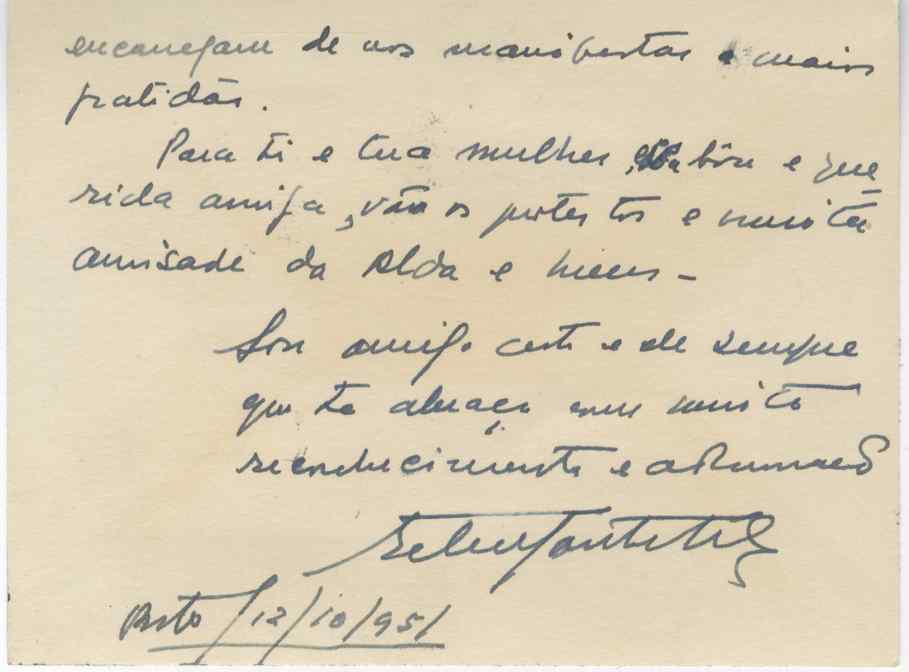 encarregam de vos manifestar a maior
gratidão.
Para ti e tua mulher, bôa e que
rida amiga, vão os protestos e muita
amisade da Alda e meus –
Sou amigo certo e de sempre
que te abraça com muito
reconhecimento e
Porto / 12/10/951